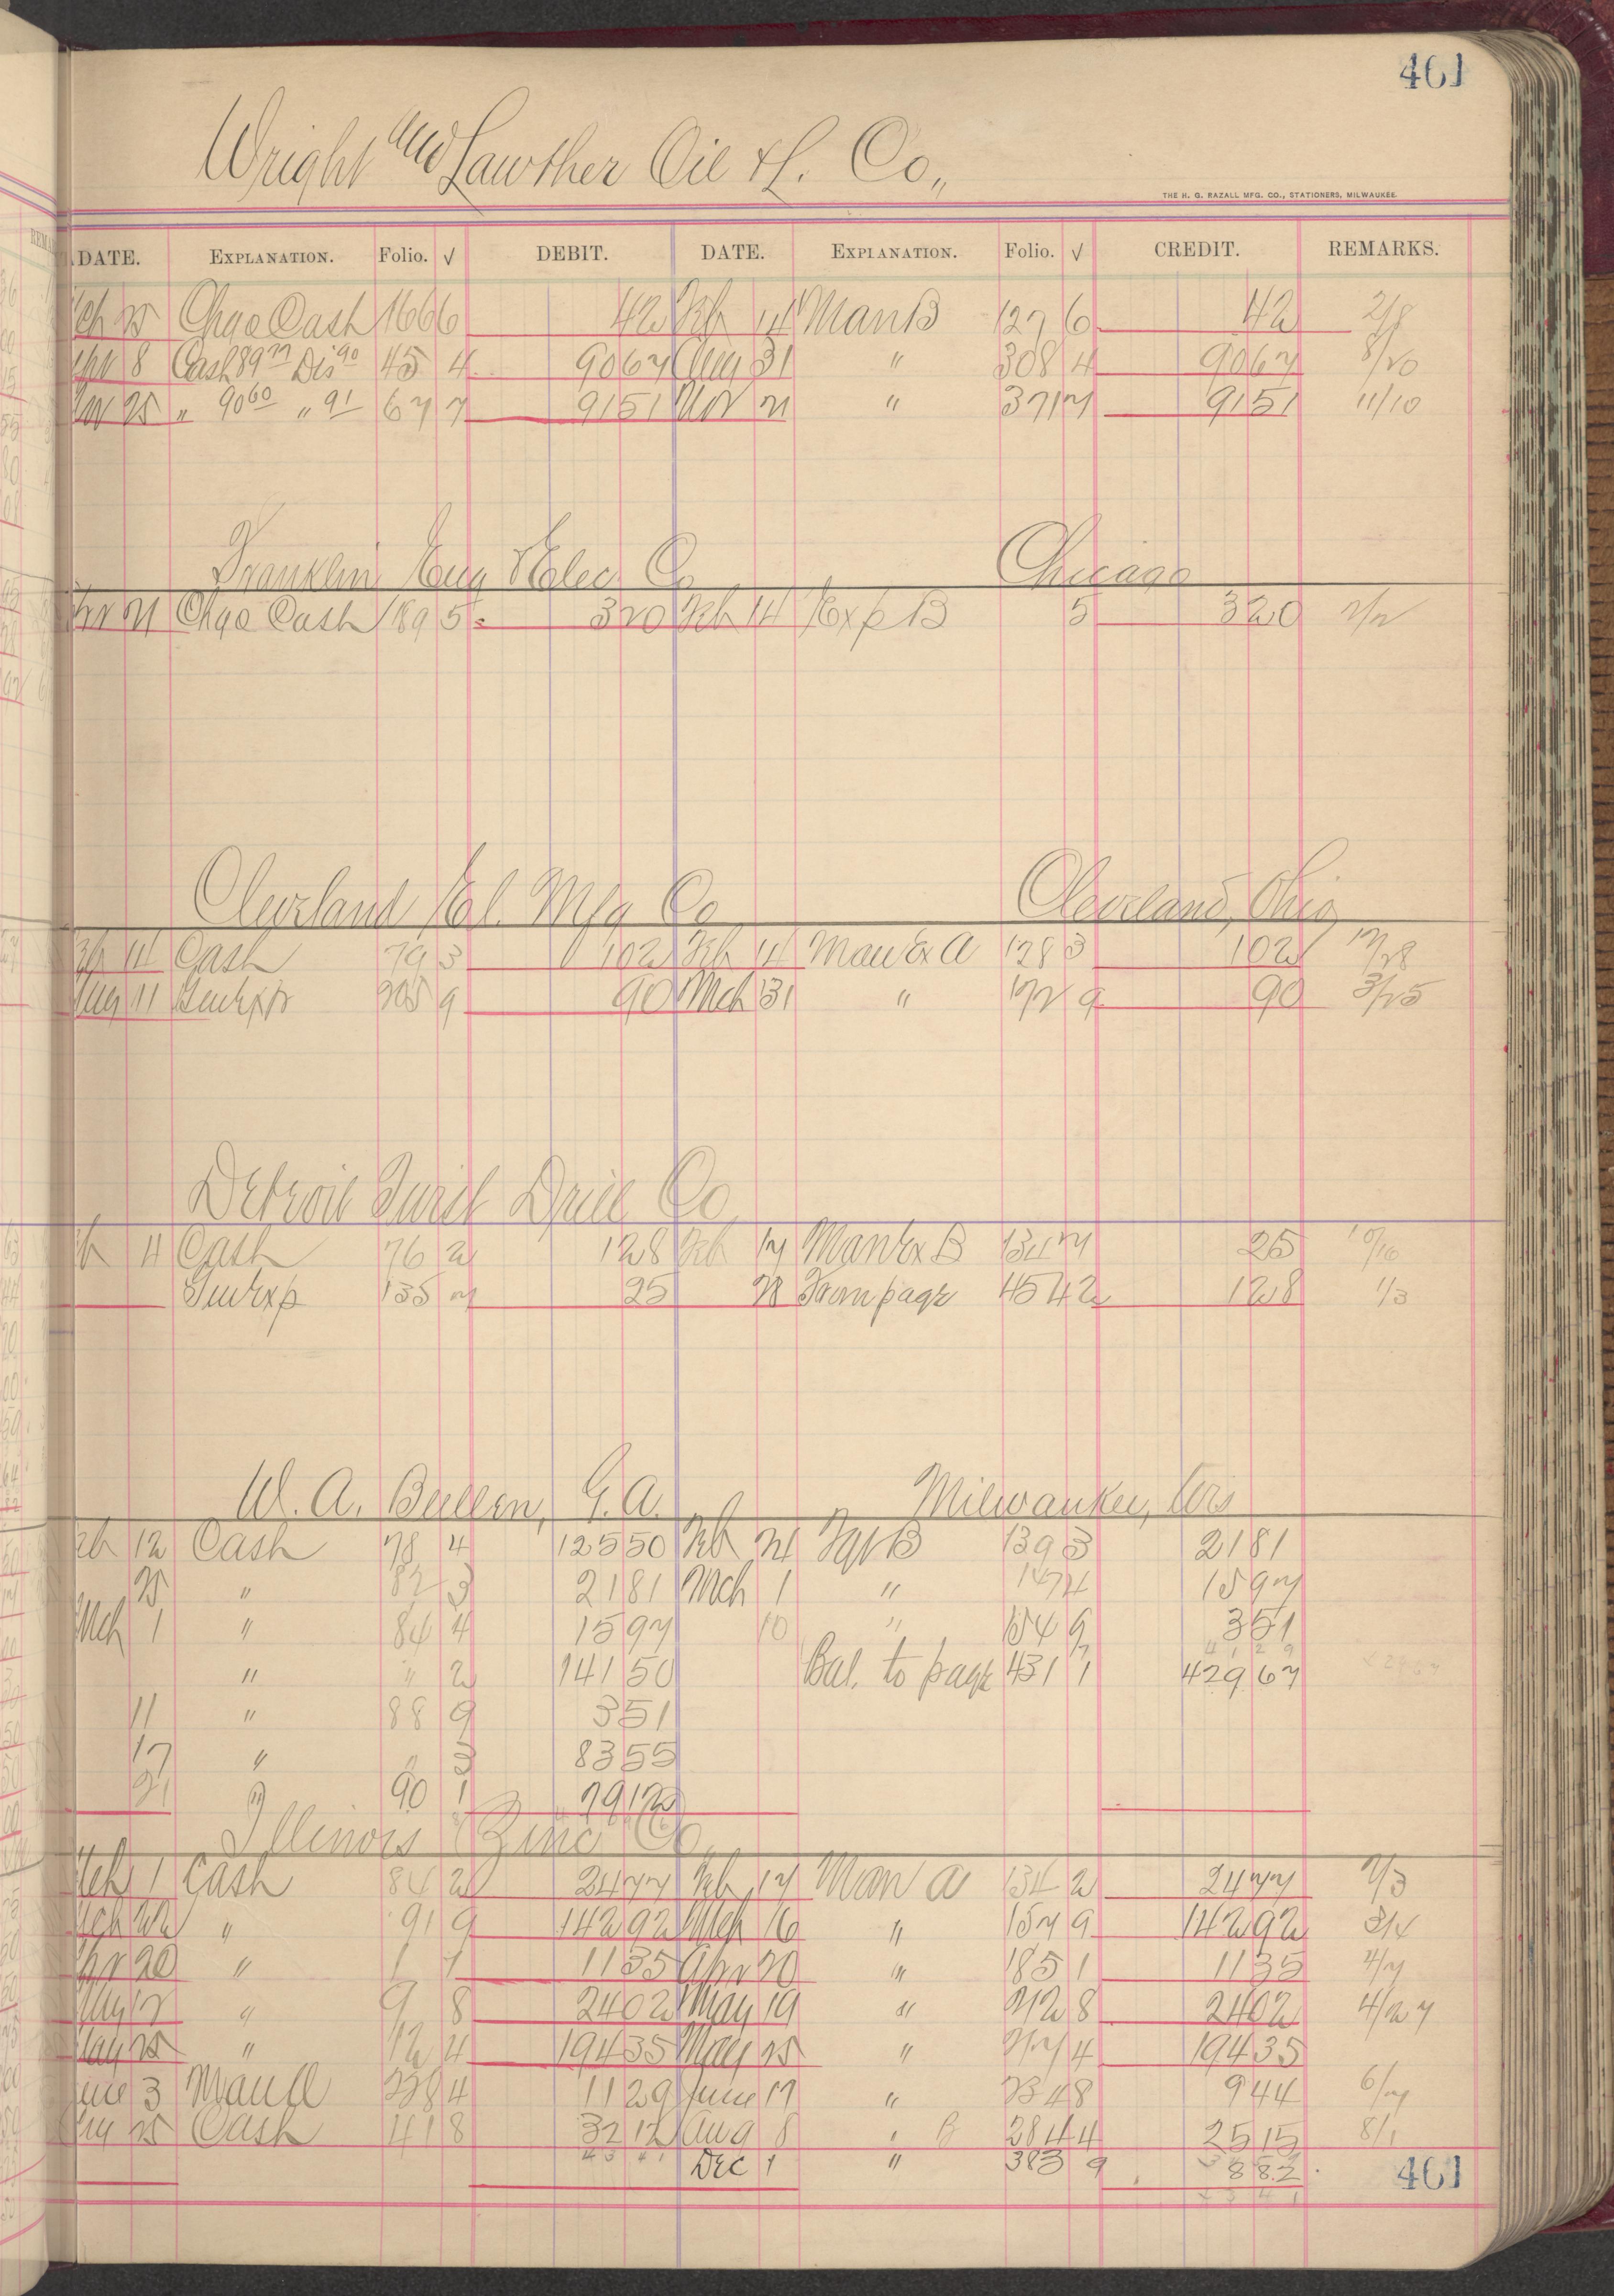 461
Wright and Lawther Oil & L. Co,,
THE H. G. RAZALL MFG. CO., STATIONERS, MILWAUKEE.
DATE. EXPLANATION. Folio. √ DEBIT. DATE. EXPLANATION. Folio. √ CREDIT. REMARKS.
25 Chgo Cash 166 6 42 Feb 14 Man B 127 6 42 2/8
8 Cash 89 77 Dis 90 45 4 90 67 Aug 31 " 308 4 90 67 8/20
Nov 25 " 90 60 " 91 67 7 91 51 Nov 21 " 371 7 91 51 11/10
Franklin Eng & Elec Co Chicago
21 Chgo Cash 189 5 3 20 Feb 14 Exp B 5 3 20 2/2
Cleveland El. Mfg Co Cleveland, Ohio
14 Cash 79 3 1 02 Feb 14 Man Ex A 128 3 1 02 12/28
Aug 11 205 9 90 Mch 31 " 172 9 90 3/25
Detroit Twist Drill Co
11 Cash 76 2 1 28 Feb 17 Man Ex B 134 7 25 10/10
135 7 25 28 From page 454 2 1 28 1/3
W. A. Bullen, G. A. Milwaukee, Wis
Feb 12 Cash 78 4 125 50 Feb 24 B 139 3 21 81
25 " 82 3 21 81 Mch 1 " 147 4 15 97
Mch 1 " 84 4 15 97 10 " 154 9 3 51
" " 2 141 50 Bal. to page 431 1 429 67
11 " 88 9 3 51
17 " " 3 83 55
21 " 90 1 79 12
Illinois Zinc Co
Mch 1 Cash 84 2 24 77 Feb 17 Man A 134 2 24 77 2/3
Mch 22 " 91 9 142 92 Mch 16 " 157 9 142 92 3/4
Apr 20 " 1 1 11 35 Apr 20 " 185 1 11 35 4/7
May 12 " 9 8 24 02 May 19 " 212 8 24 02 4/27
May 25 " 12 4 194 35 May 25 " 217 4 194 35
June 3 Man A 228 4 11 29 June 17 " 234 8 9 44 6/7
Aug 25 Cash 41 8 32 12 Aug 8 " B 284 4 25 15 8/1
Dec 1 " 383 9 8 82
461